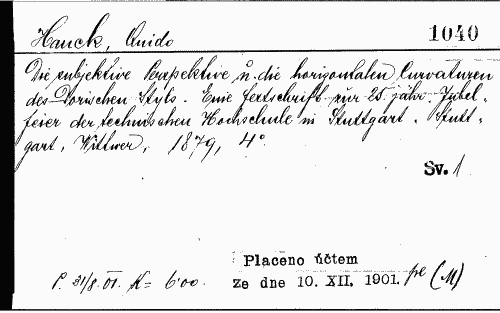 Hauck, Quido 1040
Die subjektive Perspektive u. die horizontalen Curvaturen
des Dorischen Styls. Eine Festschrift zur 25. jähr. Jubel-
feier der technischen Hochschule in Stuttgart. Stutt-
gart, Wittwer, 1879, 4°
Sv. 1
Placeno účtem
P. 31/8. 01. K= 6·00. ze dne 10. XII. 1901. (M)